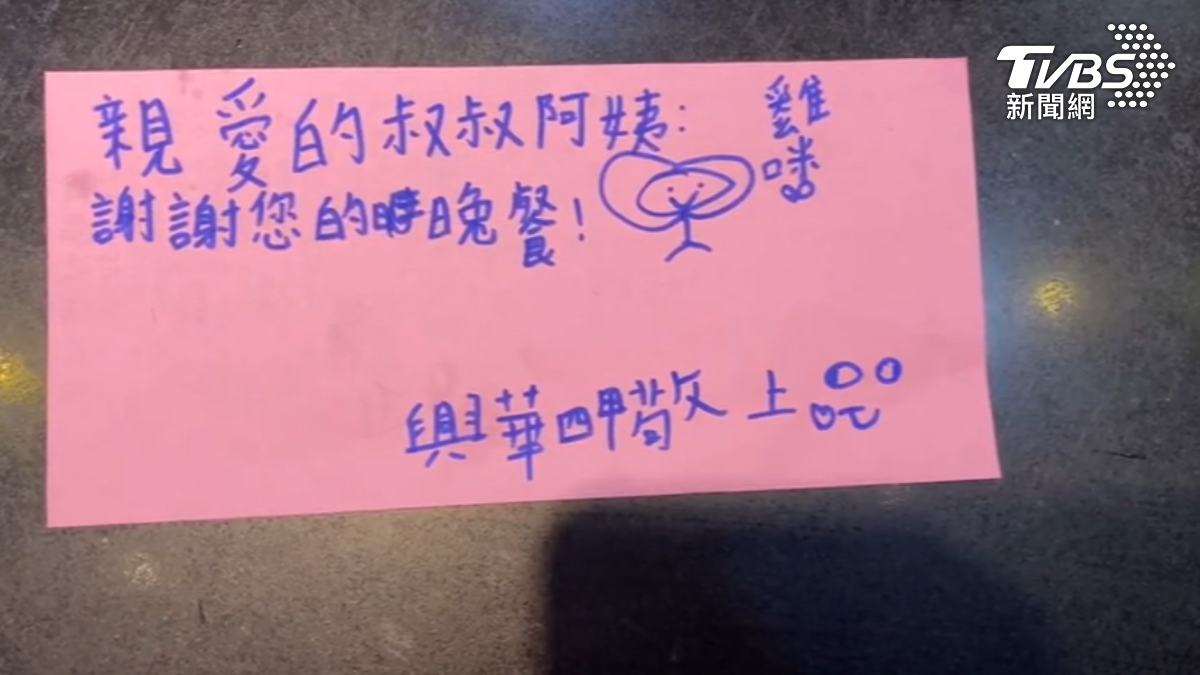 親愛的叔叔阿姨:
雞咪
謝謝您的晚餐!
興華四甲敬上
TVBS
新聞網